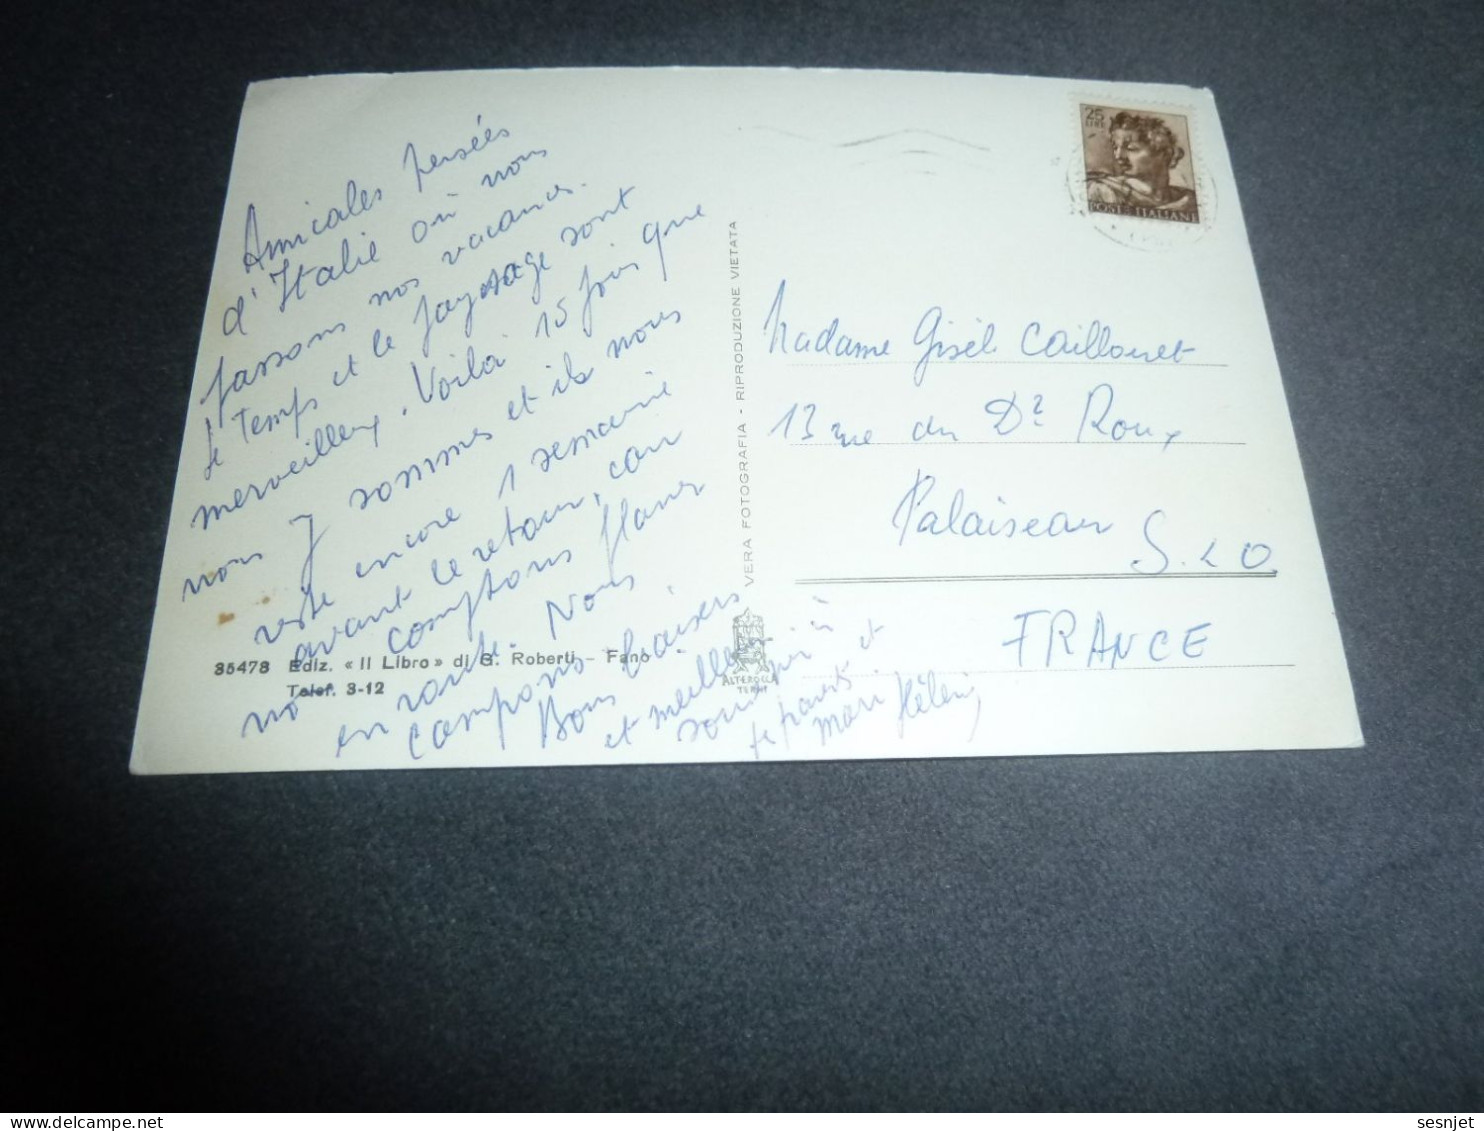 Amicales pensées
d'Italie où nous
passons nos vacances.
le Temps et le paysage sont
merveilleux. Voilà 15 jours que
nous y sommes et ils nous
reste encore 1 semaine
avant le retour, car
nous comptons flaner
en route. Nous
campons.
Bons baisers
et meilleur
souvenir à
te parents et
Mari Hélène
35478 Ediz. « Il Libro » di G. Roberti - Fano
Telef. 3-12
VERA FOTOGRAFIA - RIPRODUZIONE VIETATA
ALTEROCCA
TERNI
25
LIRE
POSTE ITALIANE
Madame Gisèle Caillouet
13 rue du Dr Roux
Palaiseau
S. & O
FRANCE
sesnjet